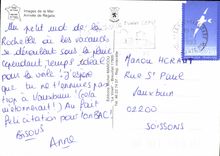 Images de la Mer
Arrivée de Régate
Un petit mot de la
Rochelle où les vacances
se déroulent sous la pluie
cependant temps idéal
pour la voile. J'espère
que tu ne t'ennuies pas
trop à Vauxbuin
Au fait
félicitation pour ton BAC!
BISOUS
Anne
Rue St Paul
Vauxbuin
02200
SOISSONS